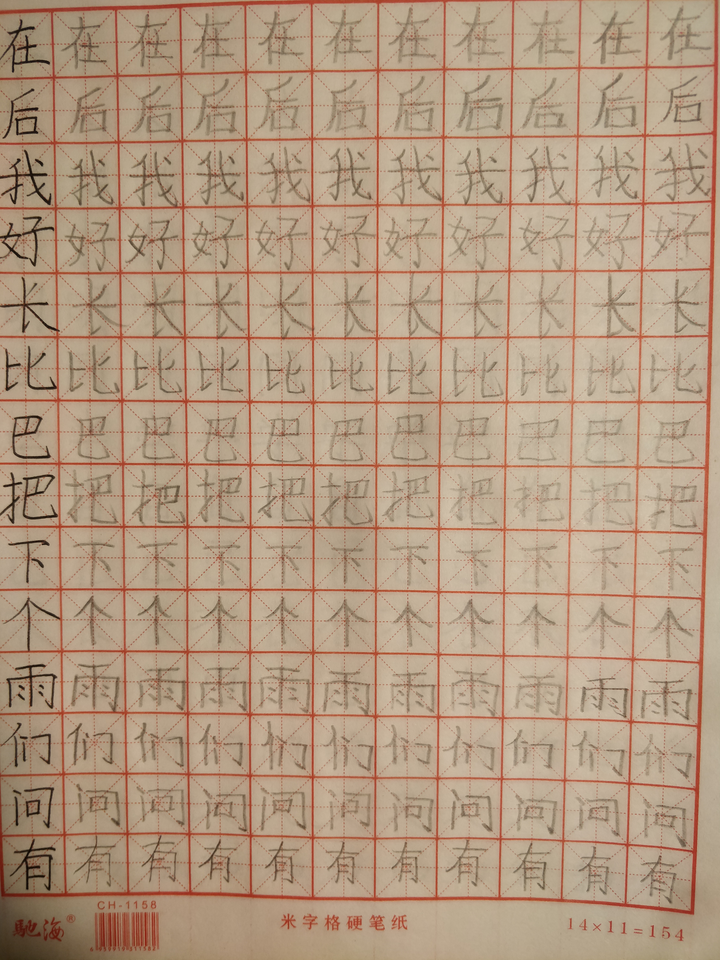 在在在在在在在在在在在
后后后后后后后后后后后
我我我我我我我我我我我
好好好好好好好好好好好
长长长长长长长长长长长
比比比比比比比比比比比
巴巴巴巴巴巴巴巴巴巴巴
把把把把把把把把把把把
下下下下下下下下下下下
个个个个个个个个个个个
雨雨雨雨雨雨雨雨雨雨雨
们们们们们们们们们们们
问问问问问问问问问问问
有有有有有有有有有有有
馳海® CH-1158 米字格硬笔纸 14×11=154